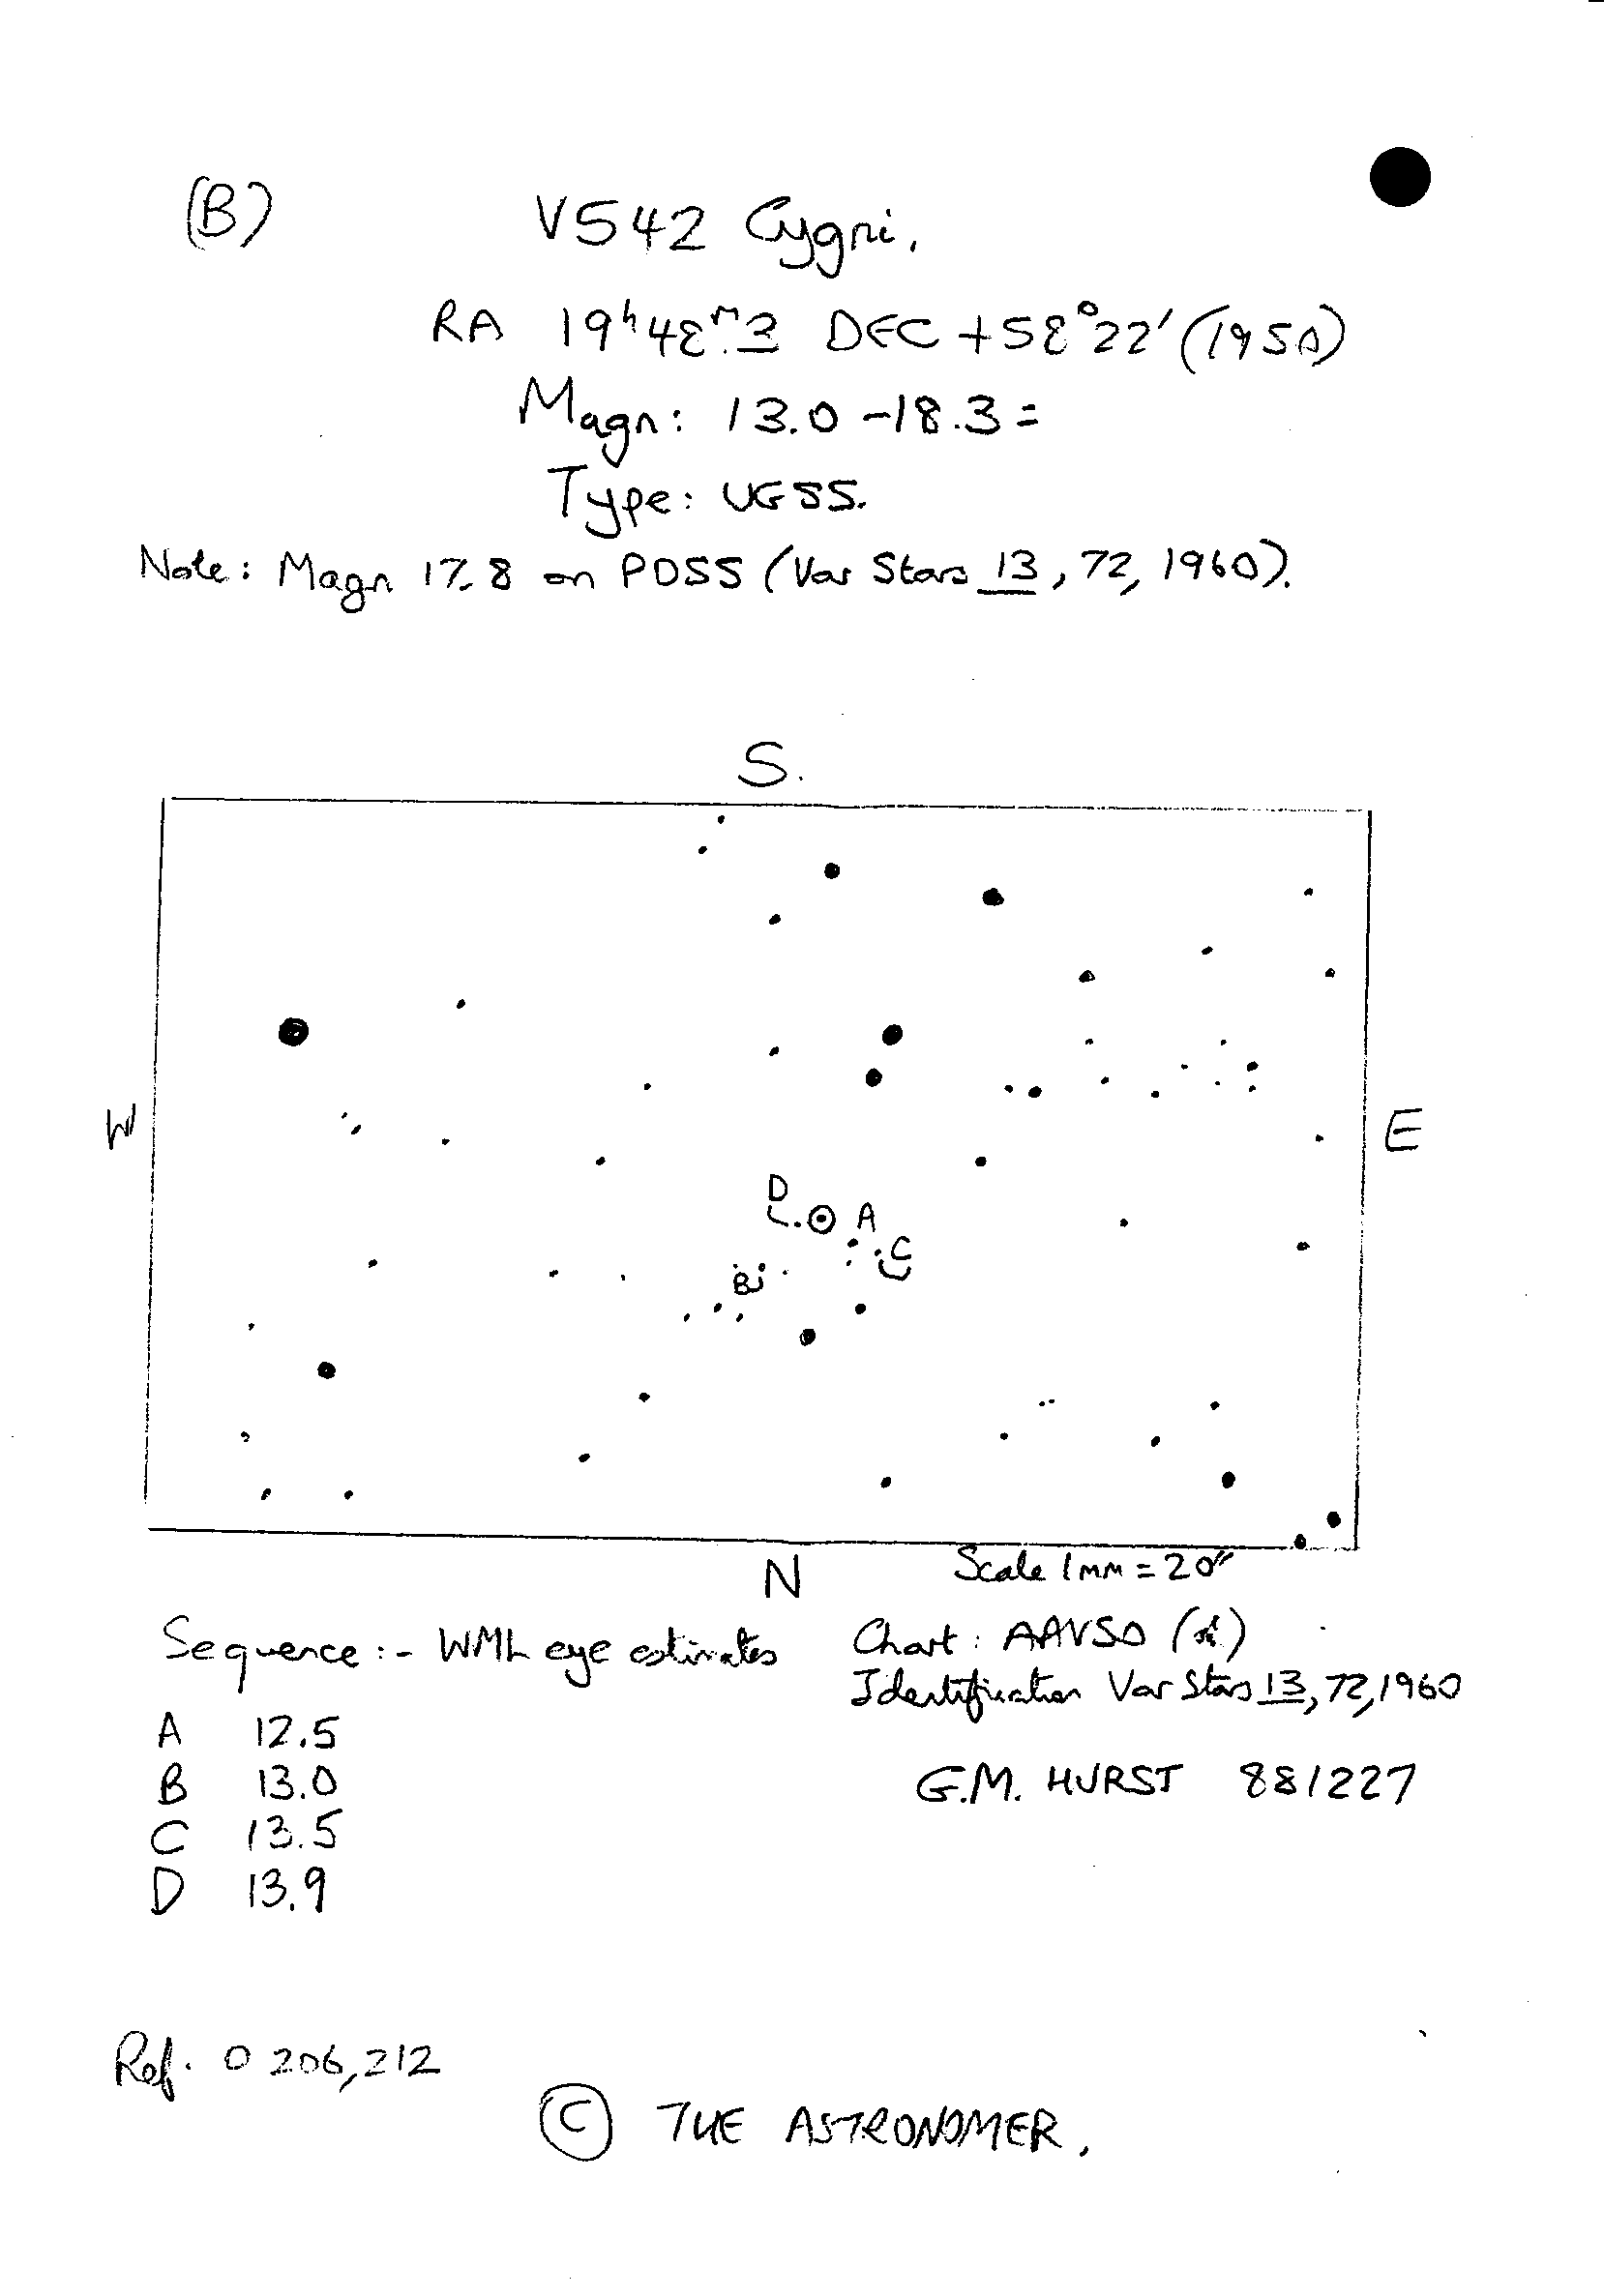 (B) V542 Cygni.
RA 19h 48m.3 DEC +58°22' (1950)
Magn: 13.0 -18.3 =
Type: UGSS.
Note: Magn 17.8 on POSS (Var Stars 13, 72, 1960).
S.
W
E
D
A
C
B
N
Scale 1mm = 20"
Sequence :- WML eye estimates
Chart: AAVSO
Identification Var Stars 13, 72, 1960
A 12.5
B 13.0
C 13.5
D 13.9
G.M. HURST 881227
Ref. 0 206,212
© THE ASTRONOMER.